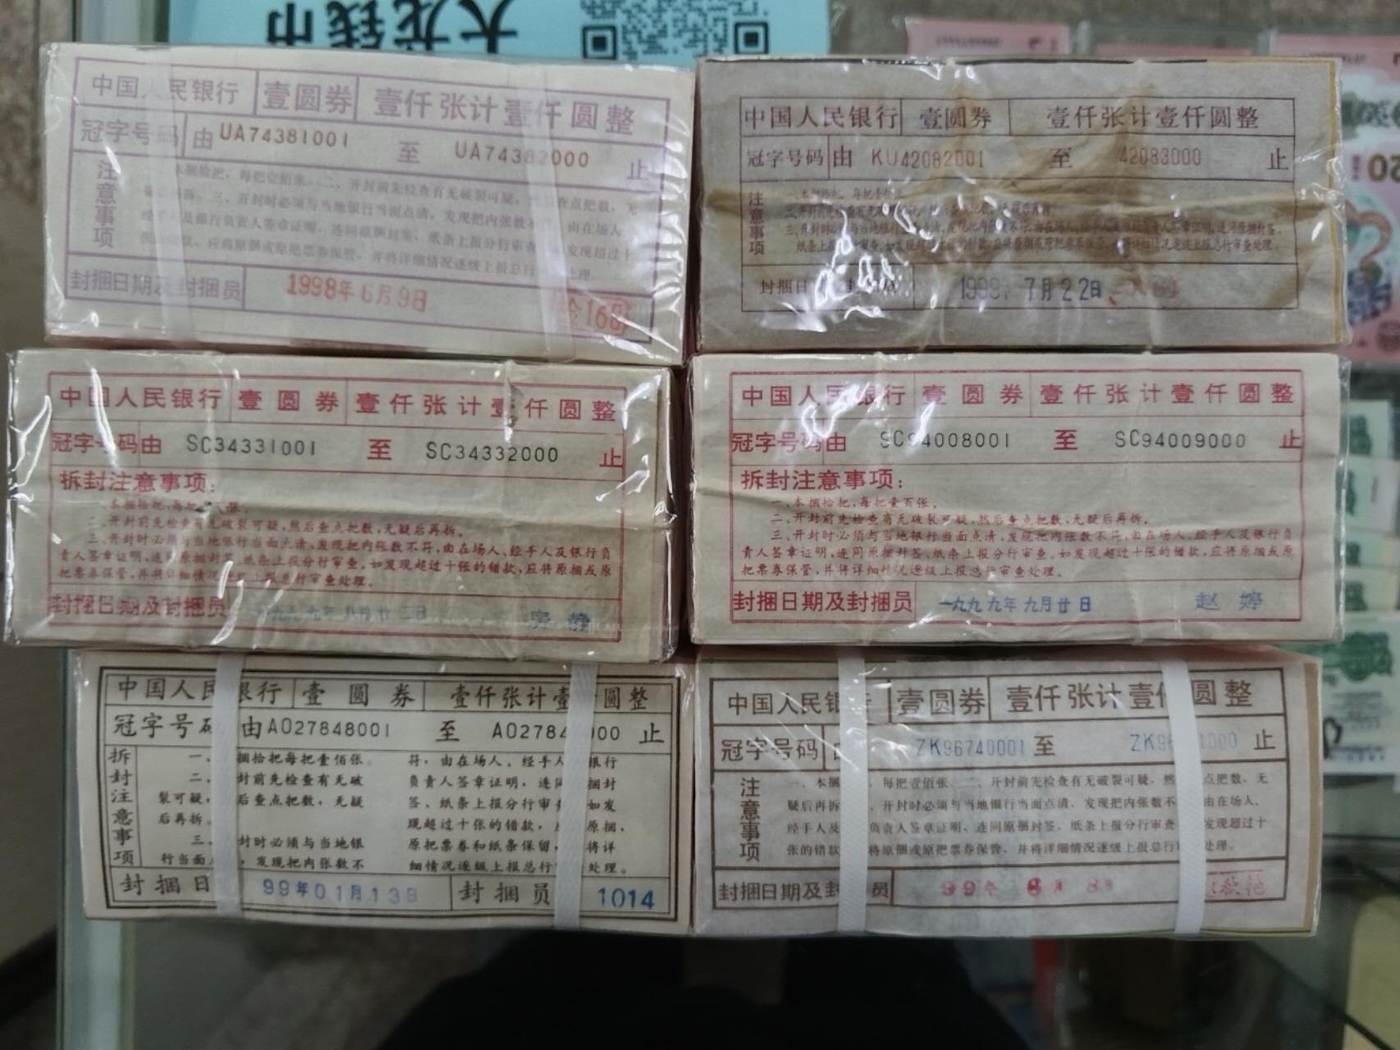 大龙钱币
中国人民银行 壹圆券 壹仟张计壹仟圆整
冠字号码 由 UA74381001 至 UA74382000 止
注意事项
封捆日期及封捆员 1998年6月9日
中国人民银行 壹圆券 壹仟张计壹仟圆整
冠字号码 由 KU42082001 至 42083000 止
注意事项
三、开封时必须与当地银行当面点清,发现把内张数不符,由在场人、经手人及银行负责人签章证明,连同原捆封签、
纸条上报分行审查,如发现超过十张的错款,应将原捆或原把票券保管,并将详细情况逐级上报总行审查处理。
7月22日
中国人民银行 壹圆券 壹仟张计壹仟圆整
冠字号码由 SC34331001 至 SC34332000 止
拆封注意事项:
一、本捆拾把,每把壹百张。
二、开封前先检查有无破裂可疑,然后查点把数,无疑后再拆。
三、开封时必须与当地银行当面点清,发现把内张数不符,由在场人、经手人及银行负
责人签章证明,连同原捆封签、纸条上报分行审查,如发现超过十张的错款,应将原捆或原
把票券保管,并将详细情况逐级上报总行审查处理。
封捆日期及封捆员
中国人民银行 壹圆券 壹仟张计壹仟圆整
冠字号码由 SC94008001 至 SC94009000 止
拆封注意事项:
一、本捆拾把,每把壹百张。
二、开封前先检查有无破裂可疑,然后查点把数,无疑后再拆。
三、开封时必须与当地银行当面点清,发现把内张数不符,由在场人、经手人及银行负
责人签章证明,连同原捆封签、纸条上报分行审查,如发现超过十张的错款,应将原捆或原
把票券保管,并将详细情况逐级上报总行审查处理。
封捆日期及封捆员 一九九九年九月廿日 赵婷
中国人民银行 壹圆券 壹仟张计壹仟圆整
冠字号码 由AO27848001 至 AO2784 000 止
拆封注意事项
一、 捆拾把每把壹佰张。
二、 封前先检查有无破
裂可疑, 后查点把数,无疑
后再拆。
三、 封时必须与当地银
行当面点 ,发现把内张数不
符,由在场人、经手人 银行
负责人签章证明,连同 捆封
签、纸条上报分行审 如发
现超过十张的错款, 原捆、
原把票券和纸条保留, 将详
细情况逐级上报总行 处理。
封捆日 99年01月13日 封捆员 1014
中国人民银行 壹圆券 壹仟张计壹仟圆整
冠字号码 ZK96740001 至 ZK96 1000 止
注意事项
一、本捆 ,每把壹佰张。二、开封前先检查有无破裂可疑,然 点把数,无
疑后再拆 开封时必须与当地银行当面点清,发现把内张数不 由在场人、
经手人及 负责人签章证明,连同原捆封签,纸条上报分行审查 发现超过十
张的错款 将原捆或原把票券保管,并将详细情况逐级上报总行 处理。
封捆日期及封 员 99年 8月 8日
20